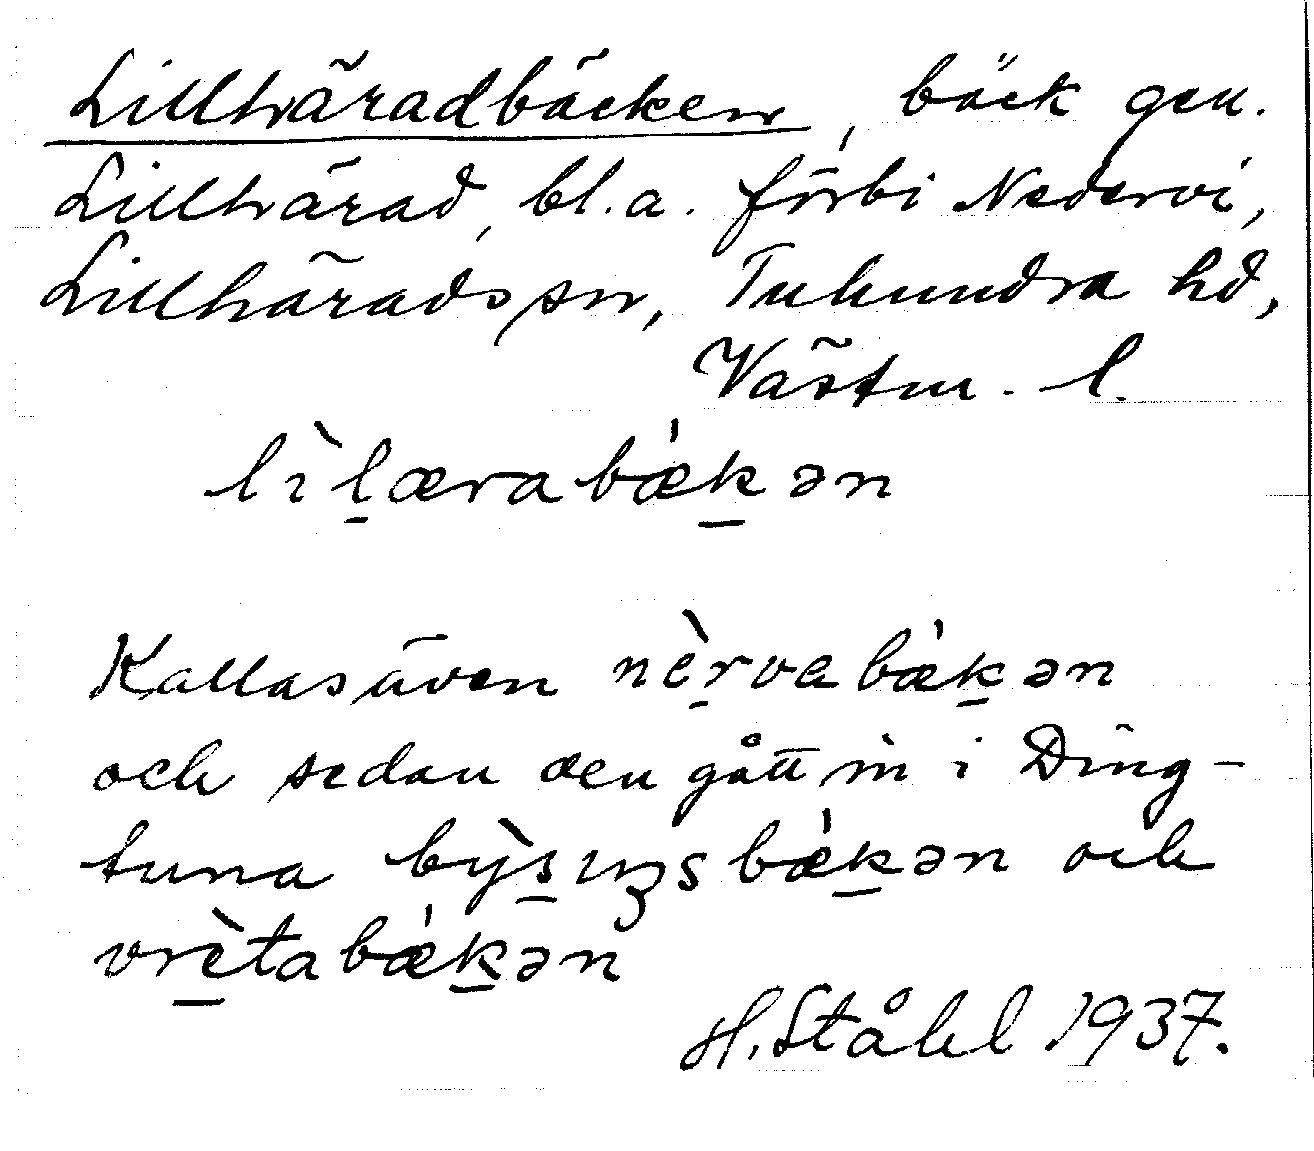 Lillhäradbäcken, bäck gen.
Lillhärad, bl.a. förbi Nedervi,
Lillhärads sn, Tuhundra hd,
Västm. l.
lìl̠ærabæ̀k̠ən
Kallas även nèr̠vabæ̀k̠ən
och sedan den gått in i Ding-
tuna bỳs̠ıŋsbæ̀k̠ən och
vrè̠tabæ̀k̠ən
H. Ståhl 1937.